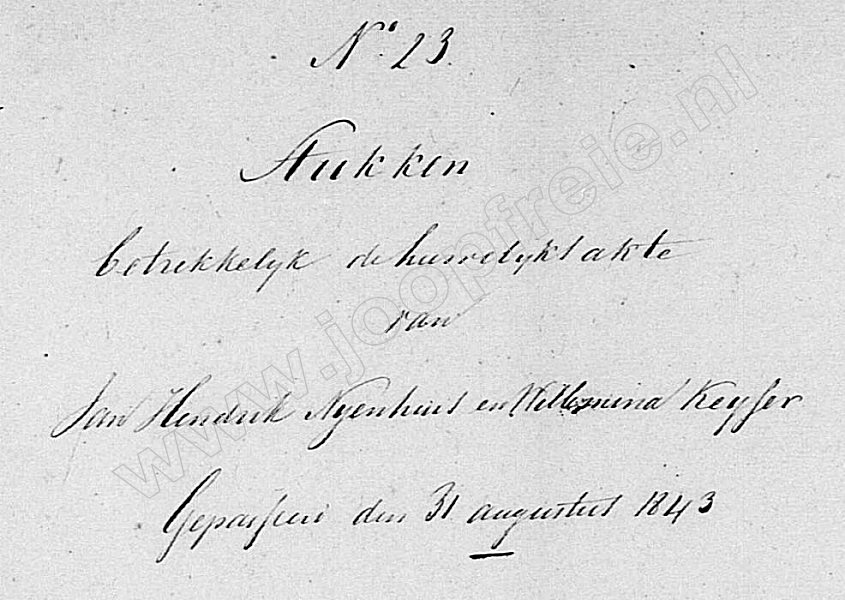 No. 23.
Stukken
betrekkelyk de huwelyks akte
van
Jan Hendrik Nyenhuis en Willemina Keyser
Gepasseerd den 31 augustus 1843
www.joopfreie.nl